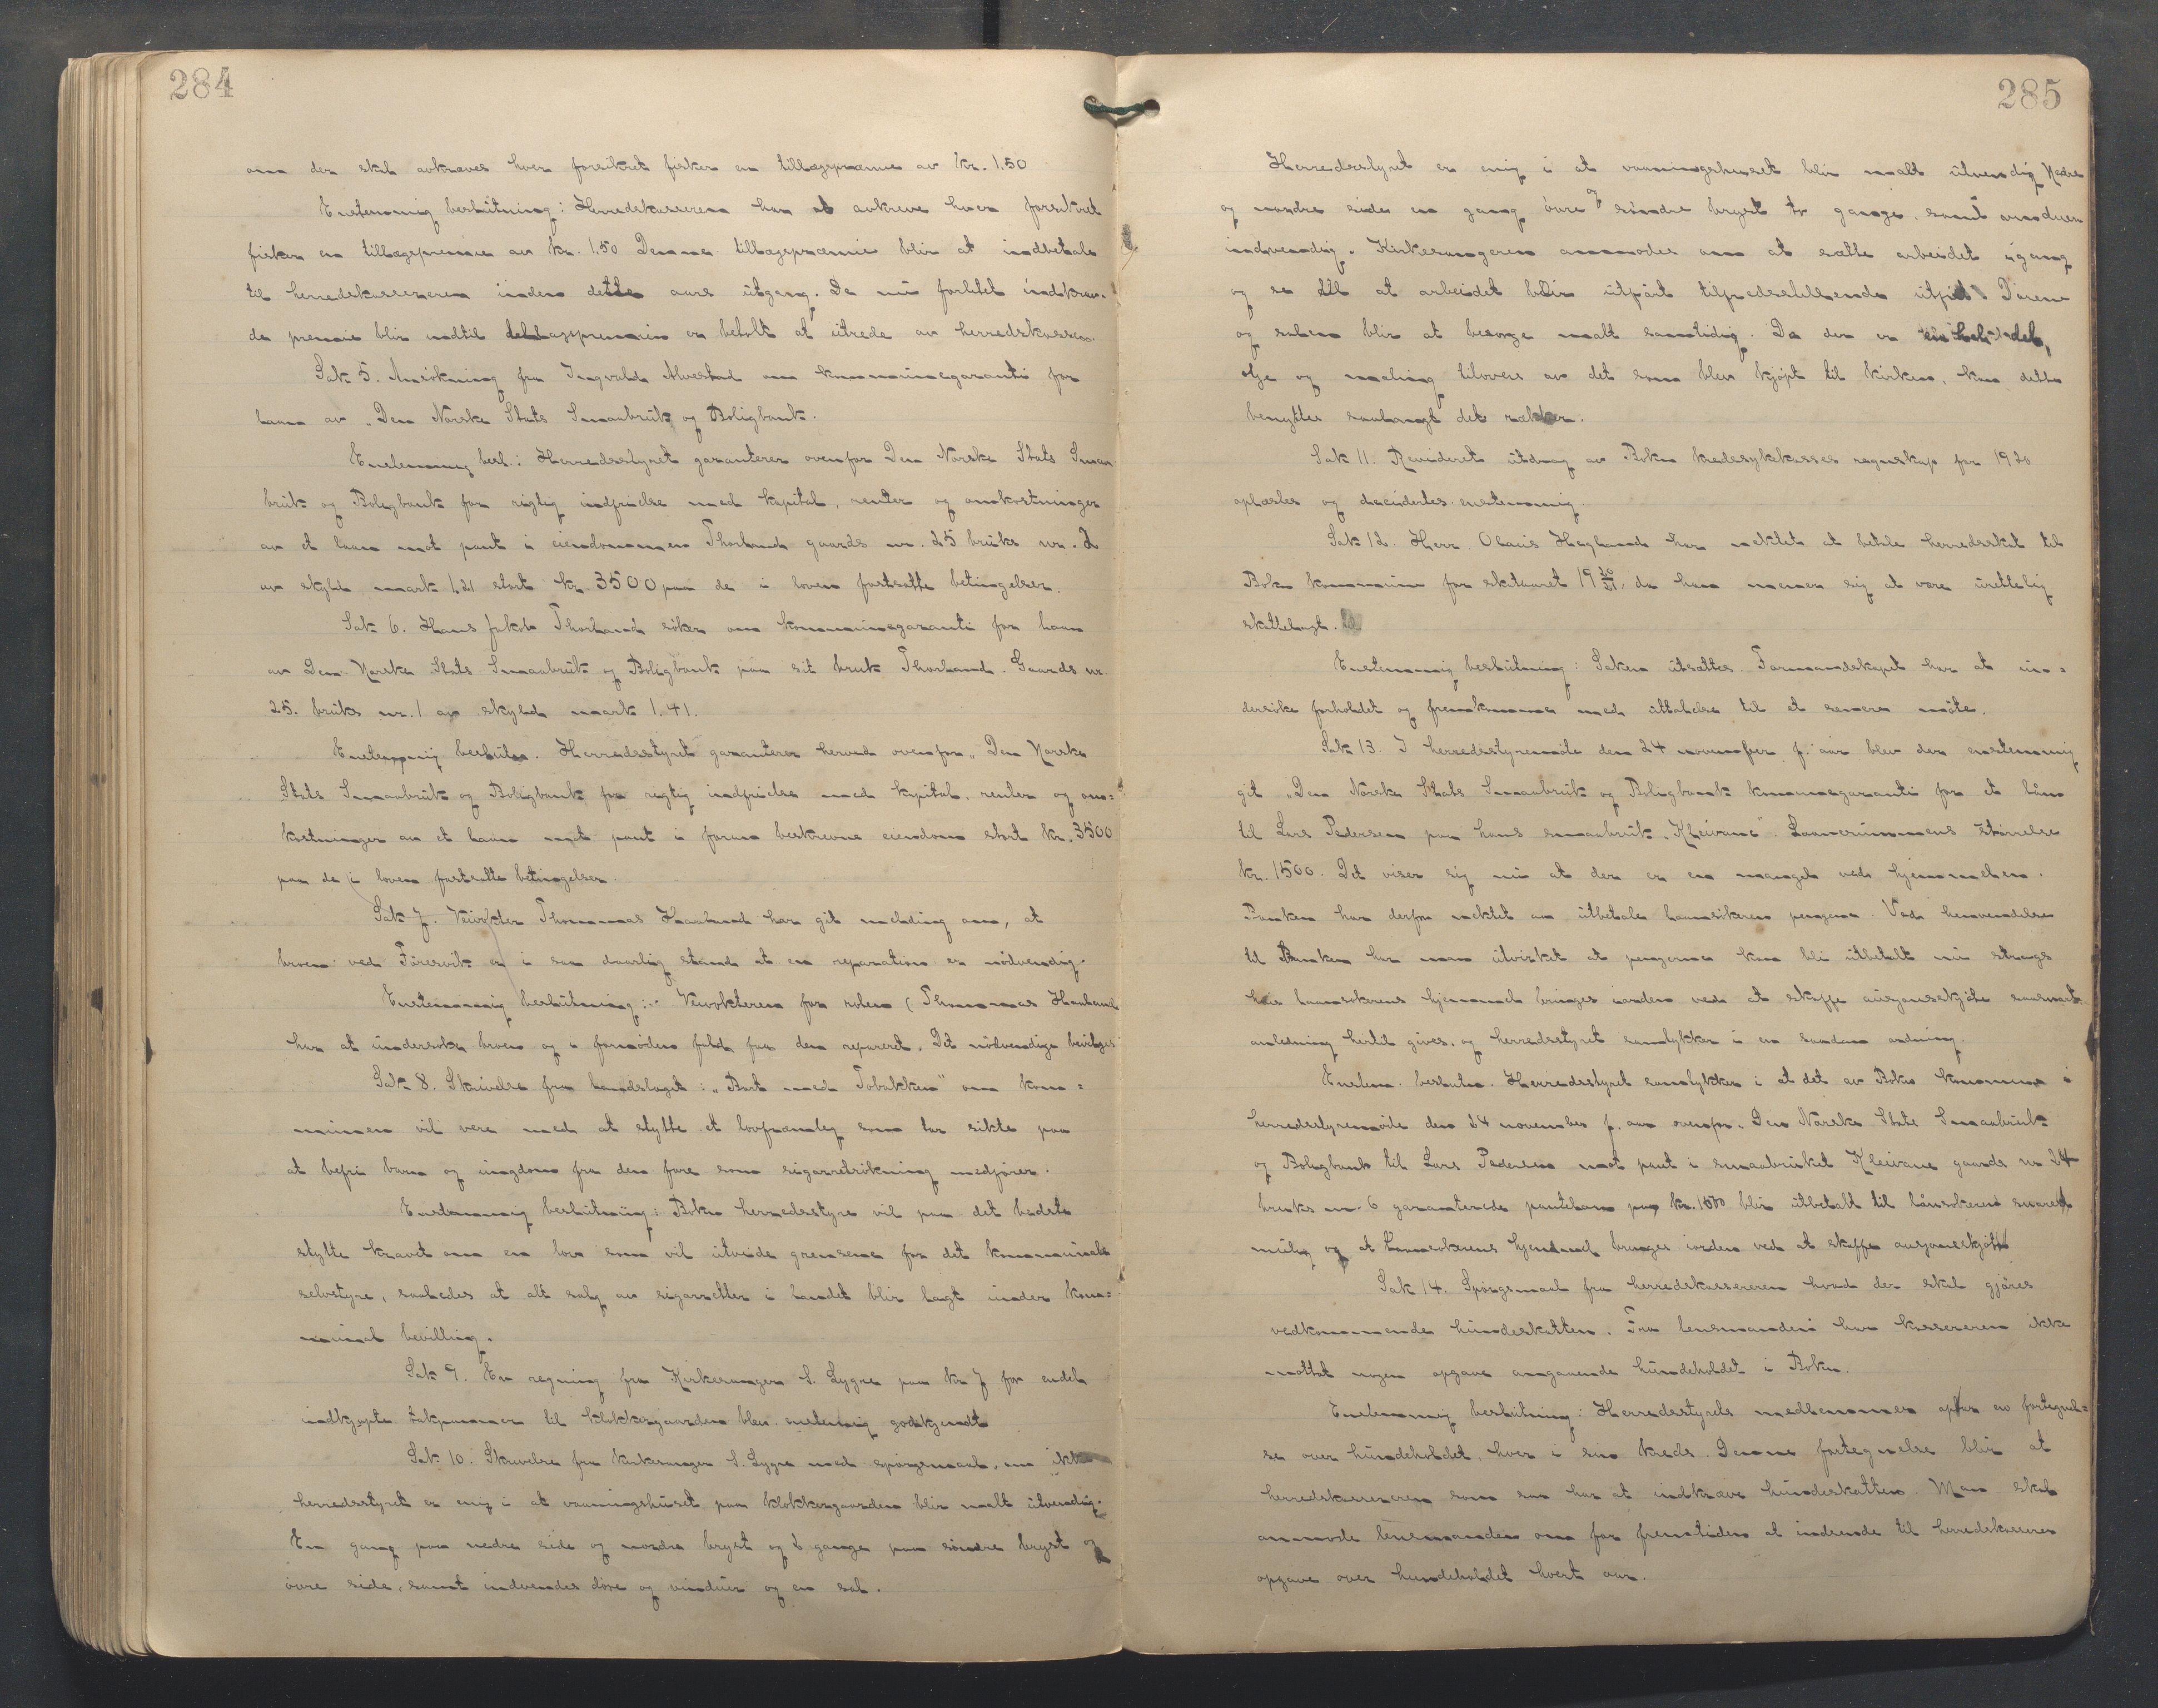 284
om der skal avkræves hver forsikret fisker en tillægspræmie av kr. 1.50
Enstemmig beslutning: Herredskasseren har at avkreve hver forsikret
fisker en tillægspremie av kr. 1,50 Denne tillægspræmie blir at indbetale
til herredskassereren inden dette aars utgang. De nu forlitet indkræv-
de premie blir indtil tillægspremien er betalt at utrede av herredskassen.
Sak 5. Ansökning fra Ingvald Alvestad om kommunegaranti for
laan av „Den Norske Stats Smaabruk og Boligbank.
Enstemmig besl.: Herredsstyret garanterer ovenfor Den Norske Stats Smaa
bruk og Boligbank for rigtig indfrielse med kapital, renter og omkostninger
av et laan mot pant i eiendommen Thorland gaards nr. 25 bruks nr. 2
av skyld mark 1,21 stort kr. 3500 paa de i loven fastsatte betingelser.
Sak 6. Hans Jakob Thorland söker om kommunegaranti for laan
av Den Norske Stats Smaabruk og Boligbank paa sit bruk Thorland. Gaards nr.
25. bruks nr. 1 av skyld mark 1.41.
Enstemmig beslutn. Herredsstyret garanterer herved ovenfor „Den Norske
Stats Smaabruk og Boligbank for rigtig indfrielse med kapital, renter og om-
kostninger av et laan mot pant i foran beskrevne eiendom stort kr. 3500
paa de i loven fastsatte betingelser.
Sak 7. Veivokter Thommas Haaland har git melding om, at
broen ved Föresvik er i saa daarlig stand at en reparation er nödvendig.
Enstemmig beslutning:- Veivokteren for roden (Thommas Haaland
har at undersöke broen og i fornöden fald faa den reparert. Det nödvendige bevilges
Sak 8. Skrivelse fra landslaget: „Bort med Tobakken" om kom-
munen vil være med at stytte et lovfremleg som tar sikte paa
at befri barn og ungdom fra den fare som sigarretrökning medförer.
Enstemmig beslutning: Bokn herredsstyre vil paa det bedste
stytte kravet om en lov som vil utvide grensene for det kommunale
selvstyre, saaledes at alt salg av sigarretter i landet blir lagt under kom-
munal bevilling.
Sak 9. En regning fra Kirkesanger S. Lygre paa kr 7 for endel
indkjøpte takpanner til klokkergaarden blev enstemig godkjendt
Sak 10. Skrivelse fra kirkesanger S. Lygre med spörgsmaal, om ikke
herredsstyret er enig i at vaaningshuset paa klokkergaarden blir malt utvendig.
En gang paa nedre side og nordre bryst og 2 gange paa söndre bryst og
övre side, samt indvendes döre og vinduer og en sal.
285
Herredsstyret er enig i at vaaningshuset blir malt utvendig Nedre
og nordre side en gang övre og söndre bryst to gange, samt vinduer
indvendig. Kirkesangeren anmodes om at sætte arbeidet igang
og se til at arbeidet blir utfört tilfredsstillende Dörene
og salen blir at besörge malt samtidig. Da der er en hel del,
olje og maling tilovers av det som blev kjöpt til kirken, kan dette
benyttes saalangt det rækker.
Sak 11. Revideret utdrag av Bokn kredssykekasses regnskap for 1920
oplæstes og decidertes enstemmig.
Sak 12. Herr Olaus Hegland har nektet at betale herredsskat til
Bokn kommune for skataaret 19 20/21, da han mener sig at være urettelig
skattelagt.
Enstemmig beslutning: Saken utsættes. Formandskapet har at un-
dersöke forholdet og fremkomme med uttalelse til et senere möte.
Sak 13. I herredsstyremöte den 24 november f. aar blev der enstemmig
git „Den Norske Stats Smaabruk og Boligbank kommunegaranti for et lån
til Lars Pedersen paa hans smaabruk „Kleivane". Laanesummens störrelse
kr. 1500. Det viser sig nu at der er en mangel ved hjemmelen.
Banken har derfor nektet au utbetale laansökeren pengene. Ved henvendelse
til Banken har man utvirket at pengene kan bli utbetalt nu straks
hvis laansökerens hjemmel bringes iorden ved at skaffe auksjonsskjöte saasnart
anledning hertil gives, og herredsstyret samtykker i en saadan ordning.
Enstem. beslutn. Herredsstyret samtykker i at det av Bokn kommune i
herredsstyremöde den 24 november f. aar ovenfor „Den Norske Stats Smaabruk
og Boligbank til Lars Pedersen mot pant i smaabruket Kleivane gaards nr 24
bruks nr 6 garanterede pantelaan paa kr. 1500 blir utbetalt til lånsökeren snarest
mulig og at laansökerens hjemmel bringes iorden ved at skaffe auksjonsskjöte
Sak 14. Spörgsmaal fra herredskassereren hvad der skal gjöres
vedkommende hundeskatten. Fra lensmanden har kassereren ikke
mottat nogen opgave angaaende hundeholdet i Bokn.
Enstemmig beslutning: Herredsstyrets medlemmer optar en fortegnel-
se over hundeholdet, hver i sin kreds. Denne fortegnelse blir at
herredskassereren som saa har at indkræve hundeskatten. Man skal
anmode lensmanden om for fremtiden at indsende til herredskasseren
opgave over hundeholdet hvert aar.